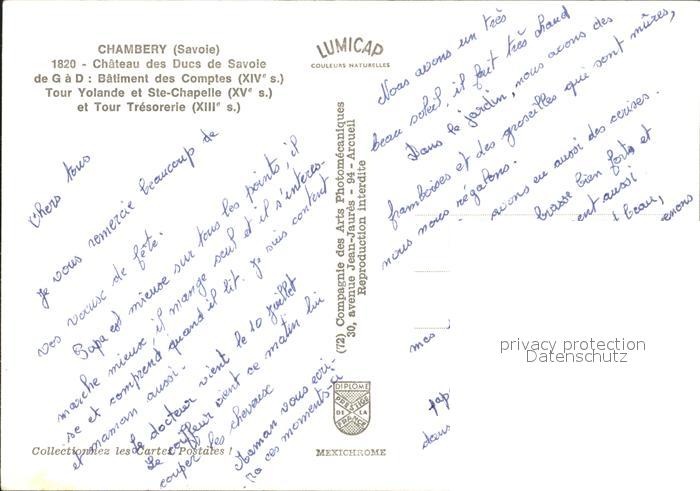 CHAMBERY (Savoie)
1820 - Château des Ducs de Savoie
de G à D : Bâtiment des Comptes (XIVe s.)
Tour Yolande et Ste-Chapelle (XVe s.)
et Tour Trésorerie (XIIIe s.)
LUMICAP
COULEURS NATURELLES
Chers tous
Je vous remercie beaucoup de
vos voeux de fête.
Papa est mieux sur tous les points, il
marche mieux, il mange seul et il s'intéres-
se et comprend quand il lit. Je suis content
et maman aussi.
Le docteur vient le 10 juillet
Le coiffeur vient ce matin lui
couper les cheveux
Maman vous écri-
ra ces moments-ci
(72) Compagnie des Arts Photomécaniques
30, avenue Jean-Jaurès - 94 - Arcueil
Reproduction interdite
Nous avons un très
beau soleil, il fait très chaud
Dans le jardin, nous avons des
framboises et des groseilles qui sont mûres,
nous nous régalons.
avons eu aussi des cerises.
brasse bien forts et
ent aussi
beau,
enons
mes
pap
dans
privacy protection
Datenschutz
DIPLOME
PRESTIGE
DE LA
FRANCE
Collectionnez les Cartes Postales !
MEXICHROME